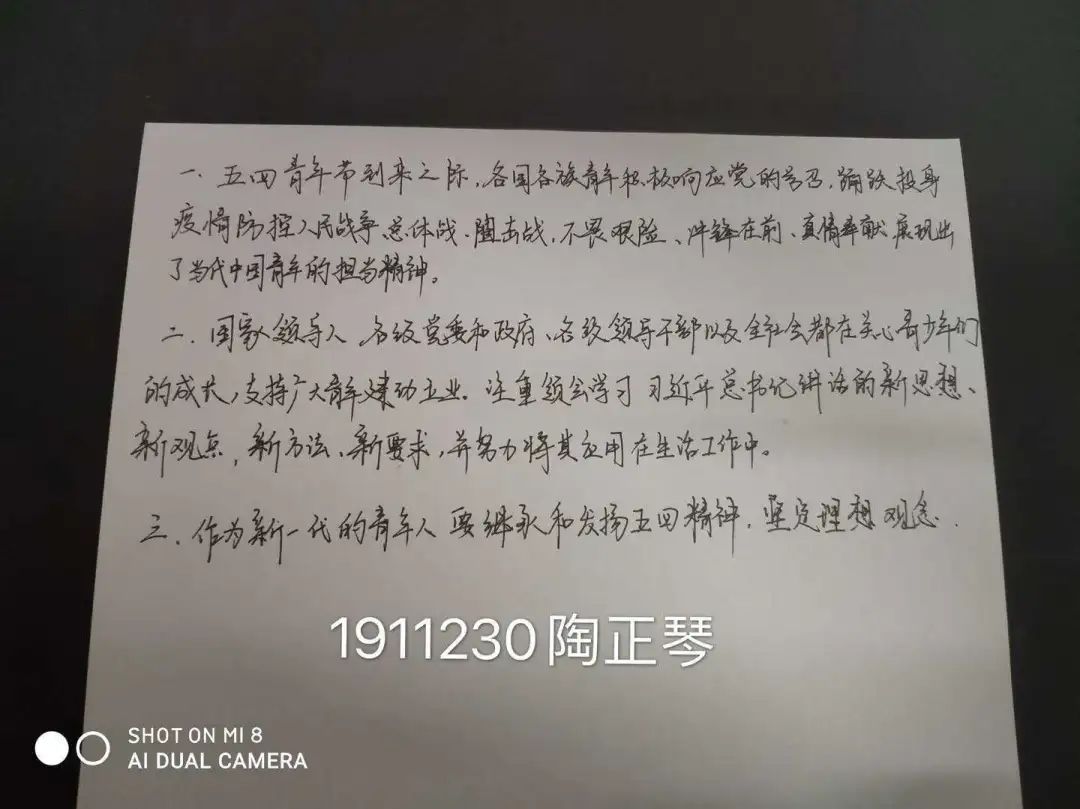 一、五四青年节到来之际,各国各族青年积极响应党的号召,踊跃投身
疫情防控人民战争、总体战、阻击战,不畏艰险、冲锋在前、真情奉献展现出
了当代中国青年的担当精神。
二、国家领导人、各级党委和政府、各级领导干部以及全社会都在关心青少年们
的成长,支持广大青年建功立业。注重领会学习习近平总书记讲话的新思想、
新观点、新方法、新要求,并努力将其应用在生活工作中。
三、作为新一代的青年人要继承和发扬五四精神,坚定理想观念.
1911230陶正琴
SHOT ON MI 8
AI DUAL CAMERA